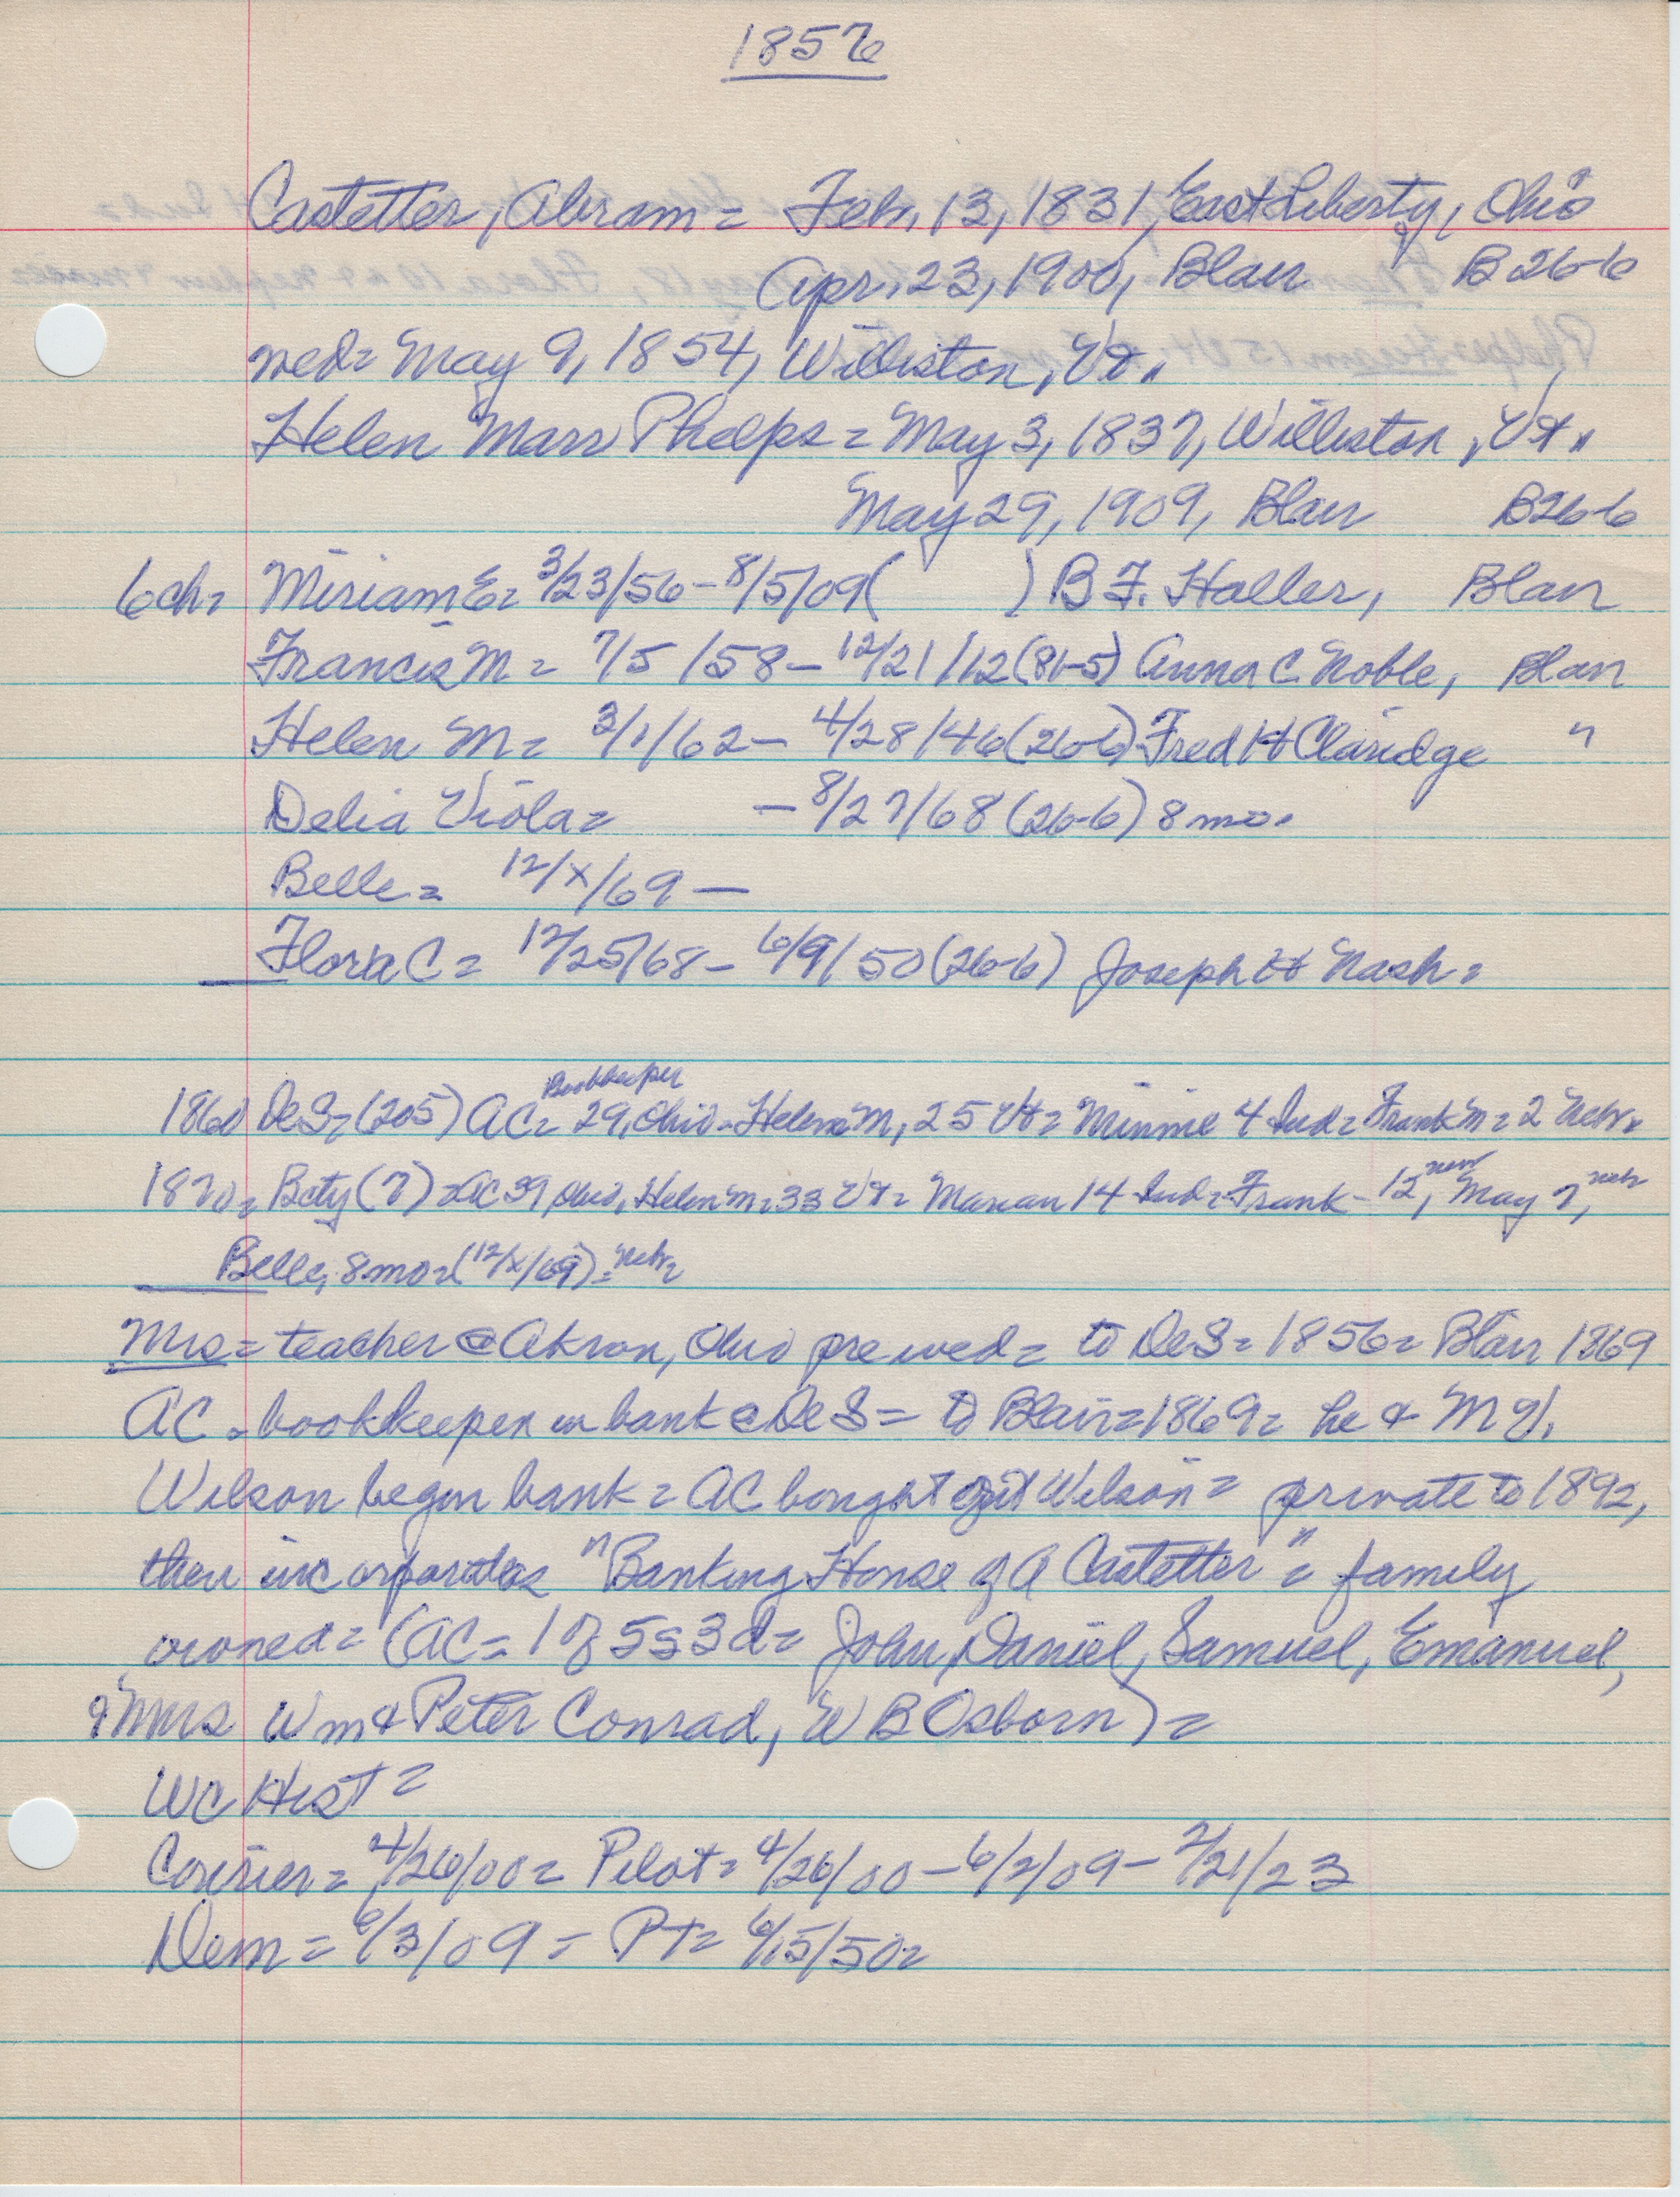 1856
Castetter, Abram = Feb. 13, 1831, East Liberty, Ohio
Apr. 23, 1900, Blair B26-6
wed = May 9, 1854, Williston, Vt.
Helen Marr Phelps = May 3, 1837, Williston, Vt.
May 29, 1909, Blair B26-6
6ch = Miriam E = 3/23/56 - 8/5/09 ( ) B F. Haller, Blair
Francis M = 7/5/58 - 12/21/12 (81-5) Anna C Noble, Blair
Helen M = 3/1/62 - 4/28/46 (26-6) Fred H Claridge "
Delia Viola = - 8/27/68 (26-6) 8 mo.
Belle = 12/x/69 -
Flora C = 12/25/68 - 6/9/50 (26-6) Joseph H Nash =
Bookkeeper
1860 DeS = (205) AC = 29, Ohio - Helen M, 25 Vt = Minnie 4 Ind = Frank M = 2 Nebr.
1870 = Bcty (7) = AC 39 Ohio, Helen M = 33 Vt = Marian 14 Ind = Frank - 12, May 7, Nebr
Belle, 8 mo = (12/x/69) = Nebr =
Mrs = teacher @ Akron, Ohio pre wed = to DeS = 1856 = Blair 1869
AC = bookkeeper in bank @ DeS = to Blair = 1869 = he & M V.
Wilson begun bank = AC bought out Wilson = private to 1892,
then incorporated as "Banking House of A Castetter" = family
owned = (AC = 1 of 5s 3d = John, Daniel, Samuel, Emanuel,
& Mmes Wm & Peter Conrad, W B Osborn) =
WC Hist =
Courier = 4/26/00 = Pilot = 4/26/00 - 6/2/09 - 2/21/23
Dem = 6/3/09 = PT = 6/15/50 =